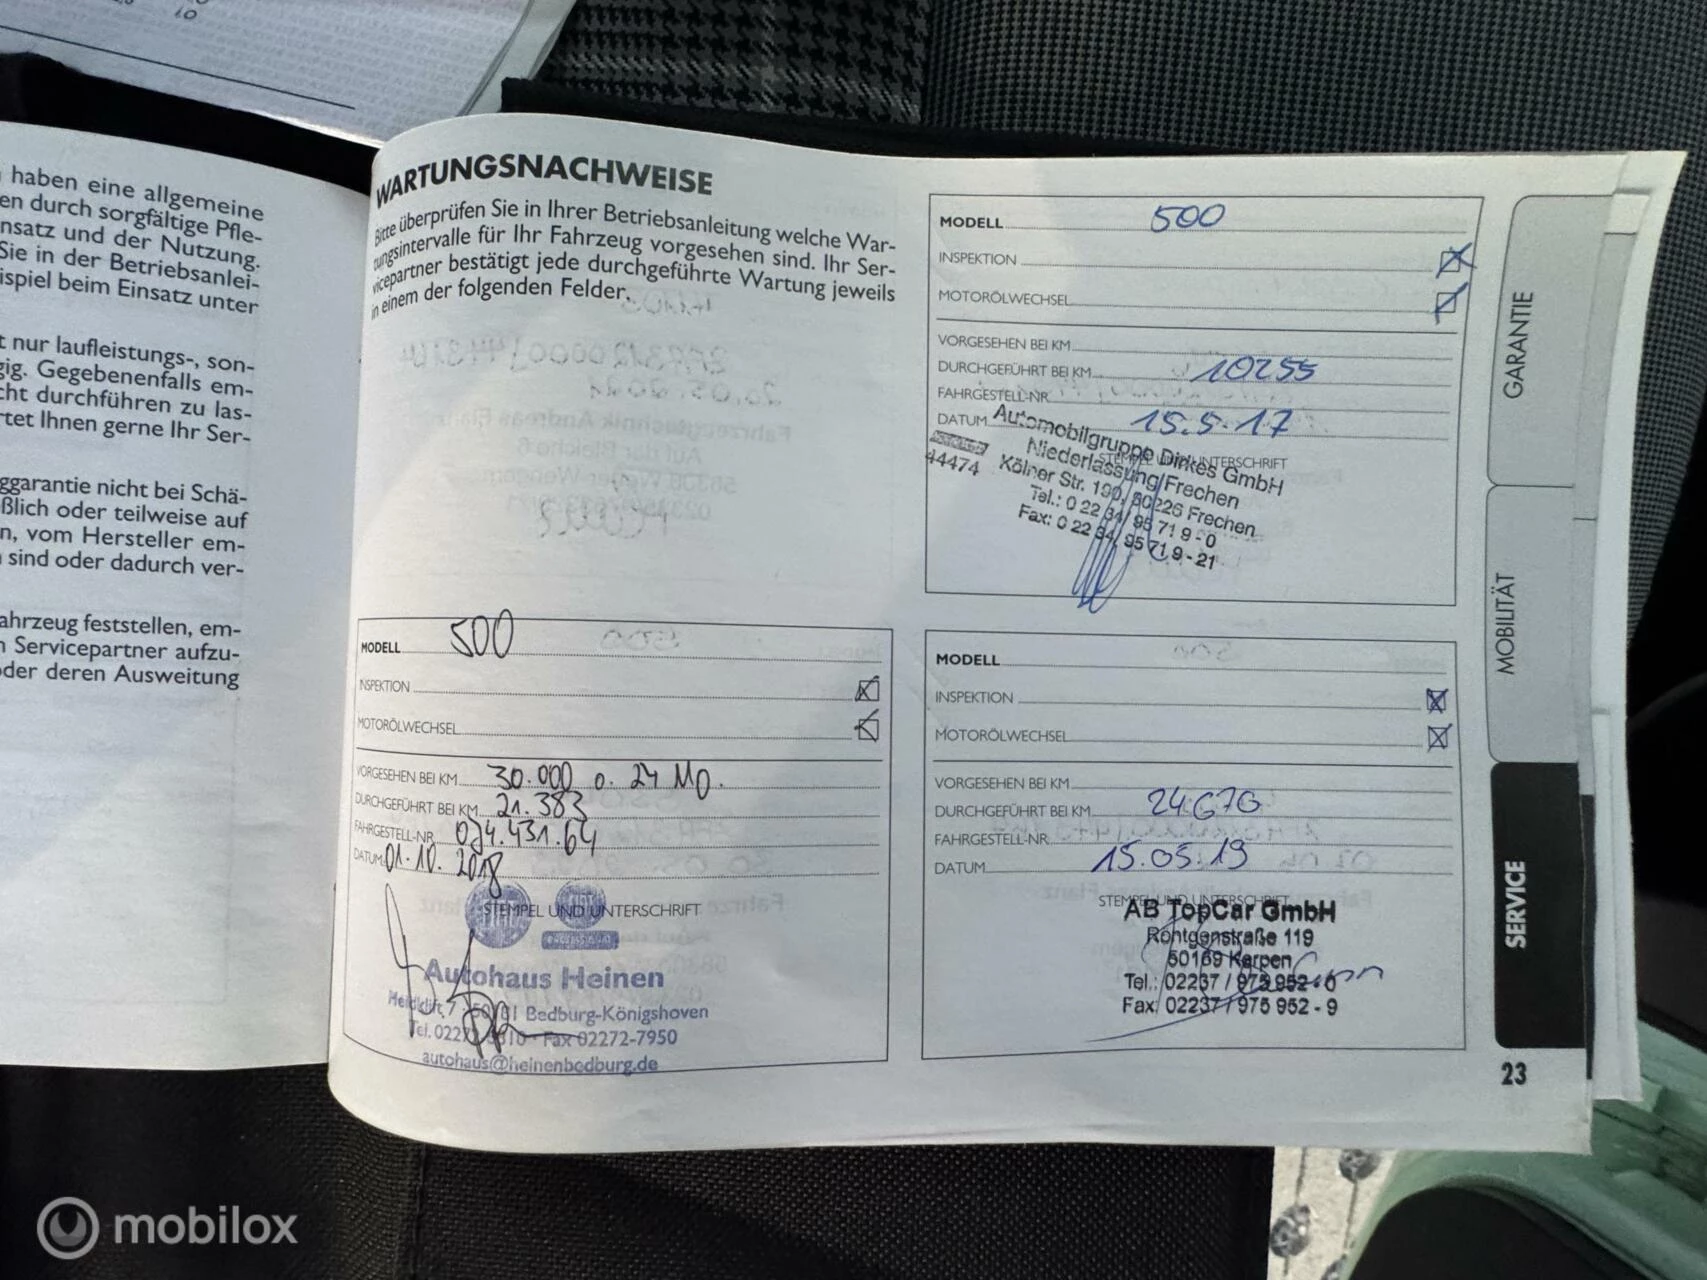 10
haben eine allgemeine
en durch sorgfältige Pfle-
nsatz und der Nutzung.
Sie in der Betriebsanlei-
ispiel beim Einsatz unter
t nur laufleistungs-, son-
gig. Gegebenenfalls em-
cht durchführen zu las-
rtet Ihnen gerne Ihr Ser-
ggarantie nicht bei Schä-
ßlich oder teilweise auf
n, vom Hersteller em-
sind oder dadurch ver-
ahrzeug feststellen, em-
n Servicepartner aufzu-
oder deren Ausweitung
WARTUNGSNACHWEISE
Bitte überprüfen Sie in Ihrer Betriebsanleitung welche War-
tungsintervalle für Ihr Fahrzeug vorgesehen sind. Ihr Ser-
vicepartner bestätigt jede durchgeführte Wartung jeweils
in einem der folgenden Felder.
MODELL 500
INSPEKTION
MOTORÖLWECHSEL
VORGESEHEN BEI KM 30.000 o. 24 MO.
DURCHGEFÜHRT BEI KM 21.383
FAHRGESTELL-NR. 074.431.64
DATUM 01.10.2018
STEMPEL UND UNTERSCHRIFT
Autohaus Heinen
Bedburg-Königshoven
Fax 02272-7950
autohaus@heinenbedburg.de
MODELL 500
INSPEKTION
MOTORÖLWECHSEL
VORGESEHEN BEI KM
DURCHGEFÜHRT BEI KM 10255
FAHRGESTELL-NR.
DATUM 15.5.17
STEMPEL UND UNTERSCHRIFT
Automobilgruppe Dirkes GmbH
Niederlassung Frechen
Kölner Str. 190, 50226 Frechen
Tel.: 0 22 34/ 95 71 9 - 0
Fax: 0 22 34/ 95 71 9 - 21
44474
MODELL
INSPEKTION
MOTORÖLWECHSEL
VORGESEHEN BEI KM
DURCHGEFÜHRT BEI KM 24.670
FAHRGESTELL-NR.
DATUM 15.05.19
STEMPEL UND UNTERSCHRIFT
AB TopCar GmbH
Röntgenstraße 119
50169 Kerpen
Tel.: 02237 / 975 952 - 0
Fax: 02237 / 975 952 - 9
GARANTIE
MOBILITÄT
SERVICE
23
mobilox